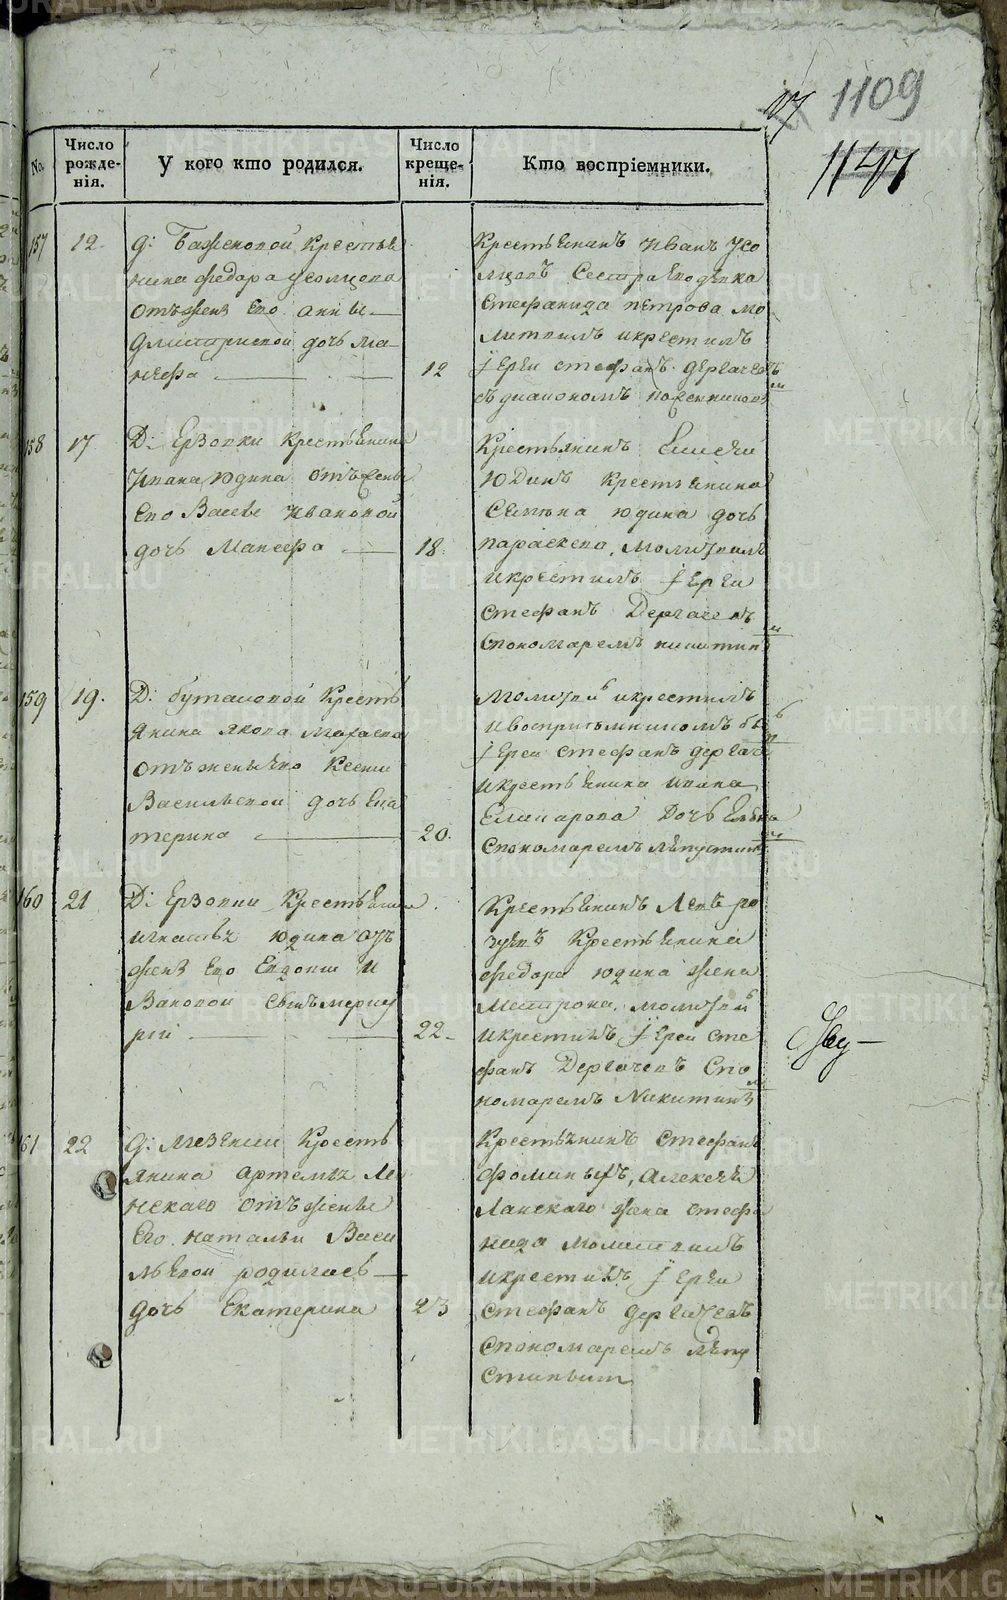 1109
1147
No.
Число рожде-нія.
У кого кто родился.
Число креще-нія.
Кто воспріемники.
157
12.
д: Баженовой Крестья
нина Федора Усолцова
отъ жены Его Анны
Дмитриевой дочь Ма-
нефа
12
Крестьянинъ Иванъ Усо
лцовъ Сестра Его девка
Стефанида Петрова мо
литвилъ и крестилъ
Іерей Стефанъ Дергачевъ
съ диакономъ
158
17
Д: Ерзовки Крестьянина
Ивана Юдина отъ жены
Его Вассы Ивановой
дочь Манефа
18.
Крестьянинъ Елисей
Юдинъ Крестьянина
Семена Юдина дочь
Параскева, молитвилъ
и крестилъ Іерей
Стефанъ Дергачевъ
с пономаремъ Никитин
159
19.
Д: Крестья
янина Якова
отъ жены Его Ксении
Васильевой дочь Ека
терина
20.
молитвилъ и крестилъ
и восприемникомъ былъ
Іерей Стефанъ Дергаче
и крестьянина Ивана
Елпарова дочь
с пономаремъ
160
21
Д: Ерзовки Крестьянина
Игнатья Юдина отъ
жены Его Евдокии И
вановой сынъ Мерку
рій
22.
Крестьянинъ Левъ
Крестьянина
Федора Юдина жена
Матрона, молитвилъ
и крестилъ Іерей Сте
фанъ Дергачевъ с по
номаремъ Никитин
161
22
д: Крестья
янина Артемья Ла
нскаго отъ жены
Его Натальи Васи
льевой родилась
дочь Екатерина
23
Крестьянинъ Стефанъ
Фоминыхъ, Алексея
Ланскаго жена Стефа
нида молитвилъ
и крестилъ Іерей
Стефанъ Дергачевъ
с пономаремъ
METRIKI.GASO-URAL.RU